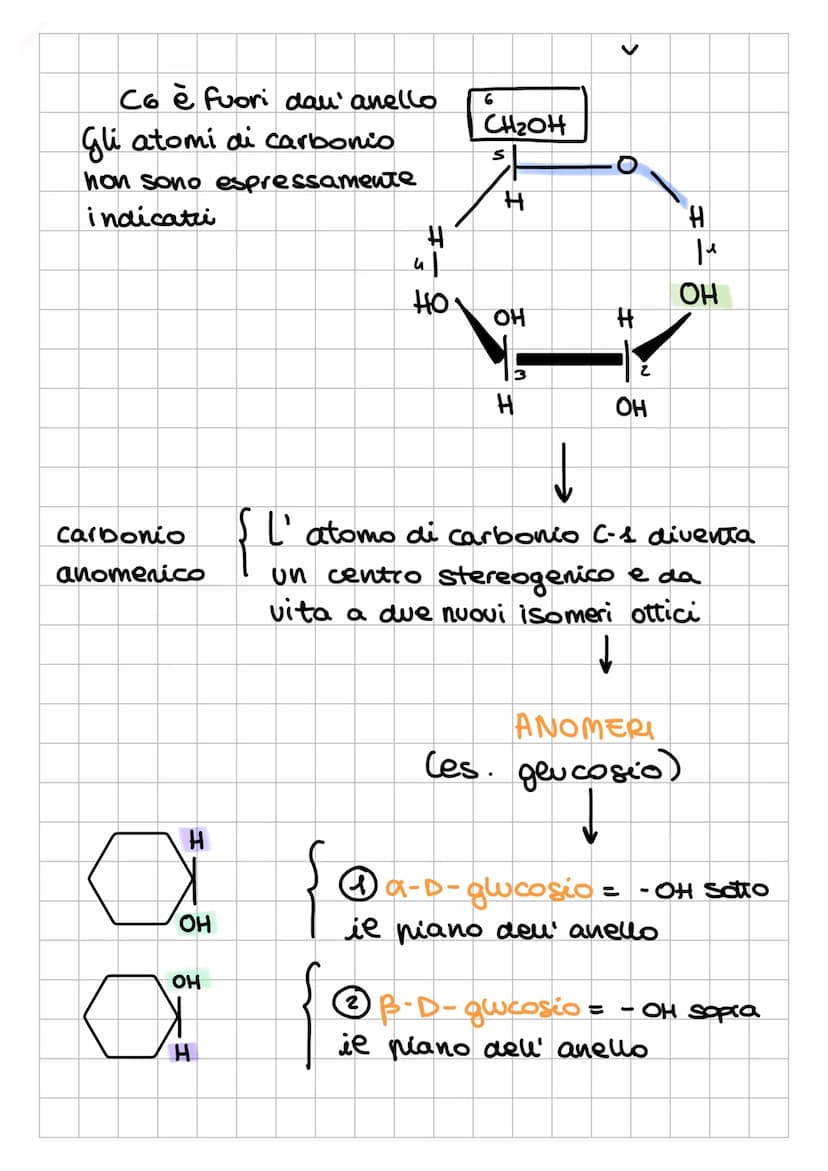 C6 è fuori dall'anello
Gli atomi di carbonio
non sono espressamente
indicati
6
CH₂OH
5
O
H
H
H
4
1
HO
OH
OH
H
3
2
H
OH
carbonio
anomerico
L' atomo di carbonio C-1 diventa
un centro stereogenico e da
vita a due nuovi isomeri ottici
ANOMERI
(es. glucosio)
H
OH
1 α-D-glucosio = -OH sotto
il piano dell'anello
OH
H
2 β-D-glucosio = -OH sopra
il piano dell'anello